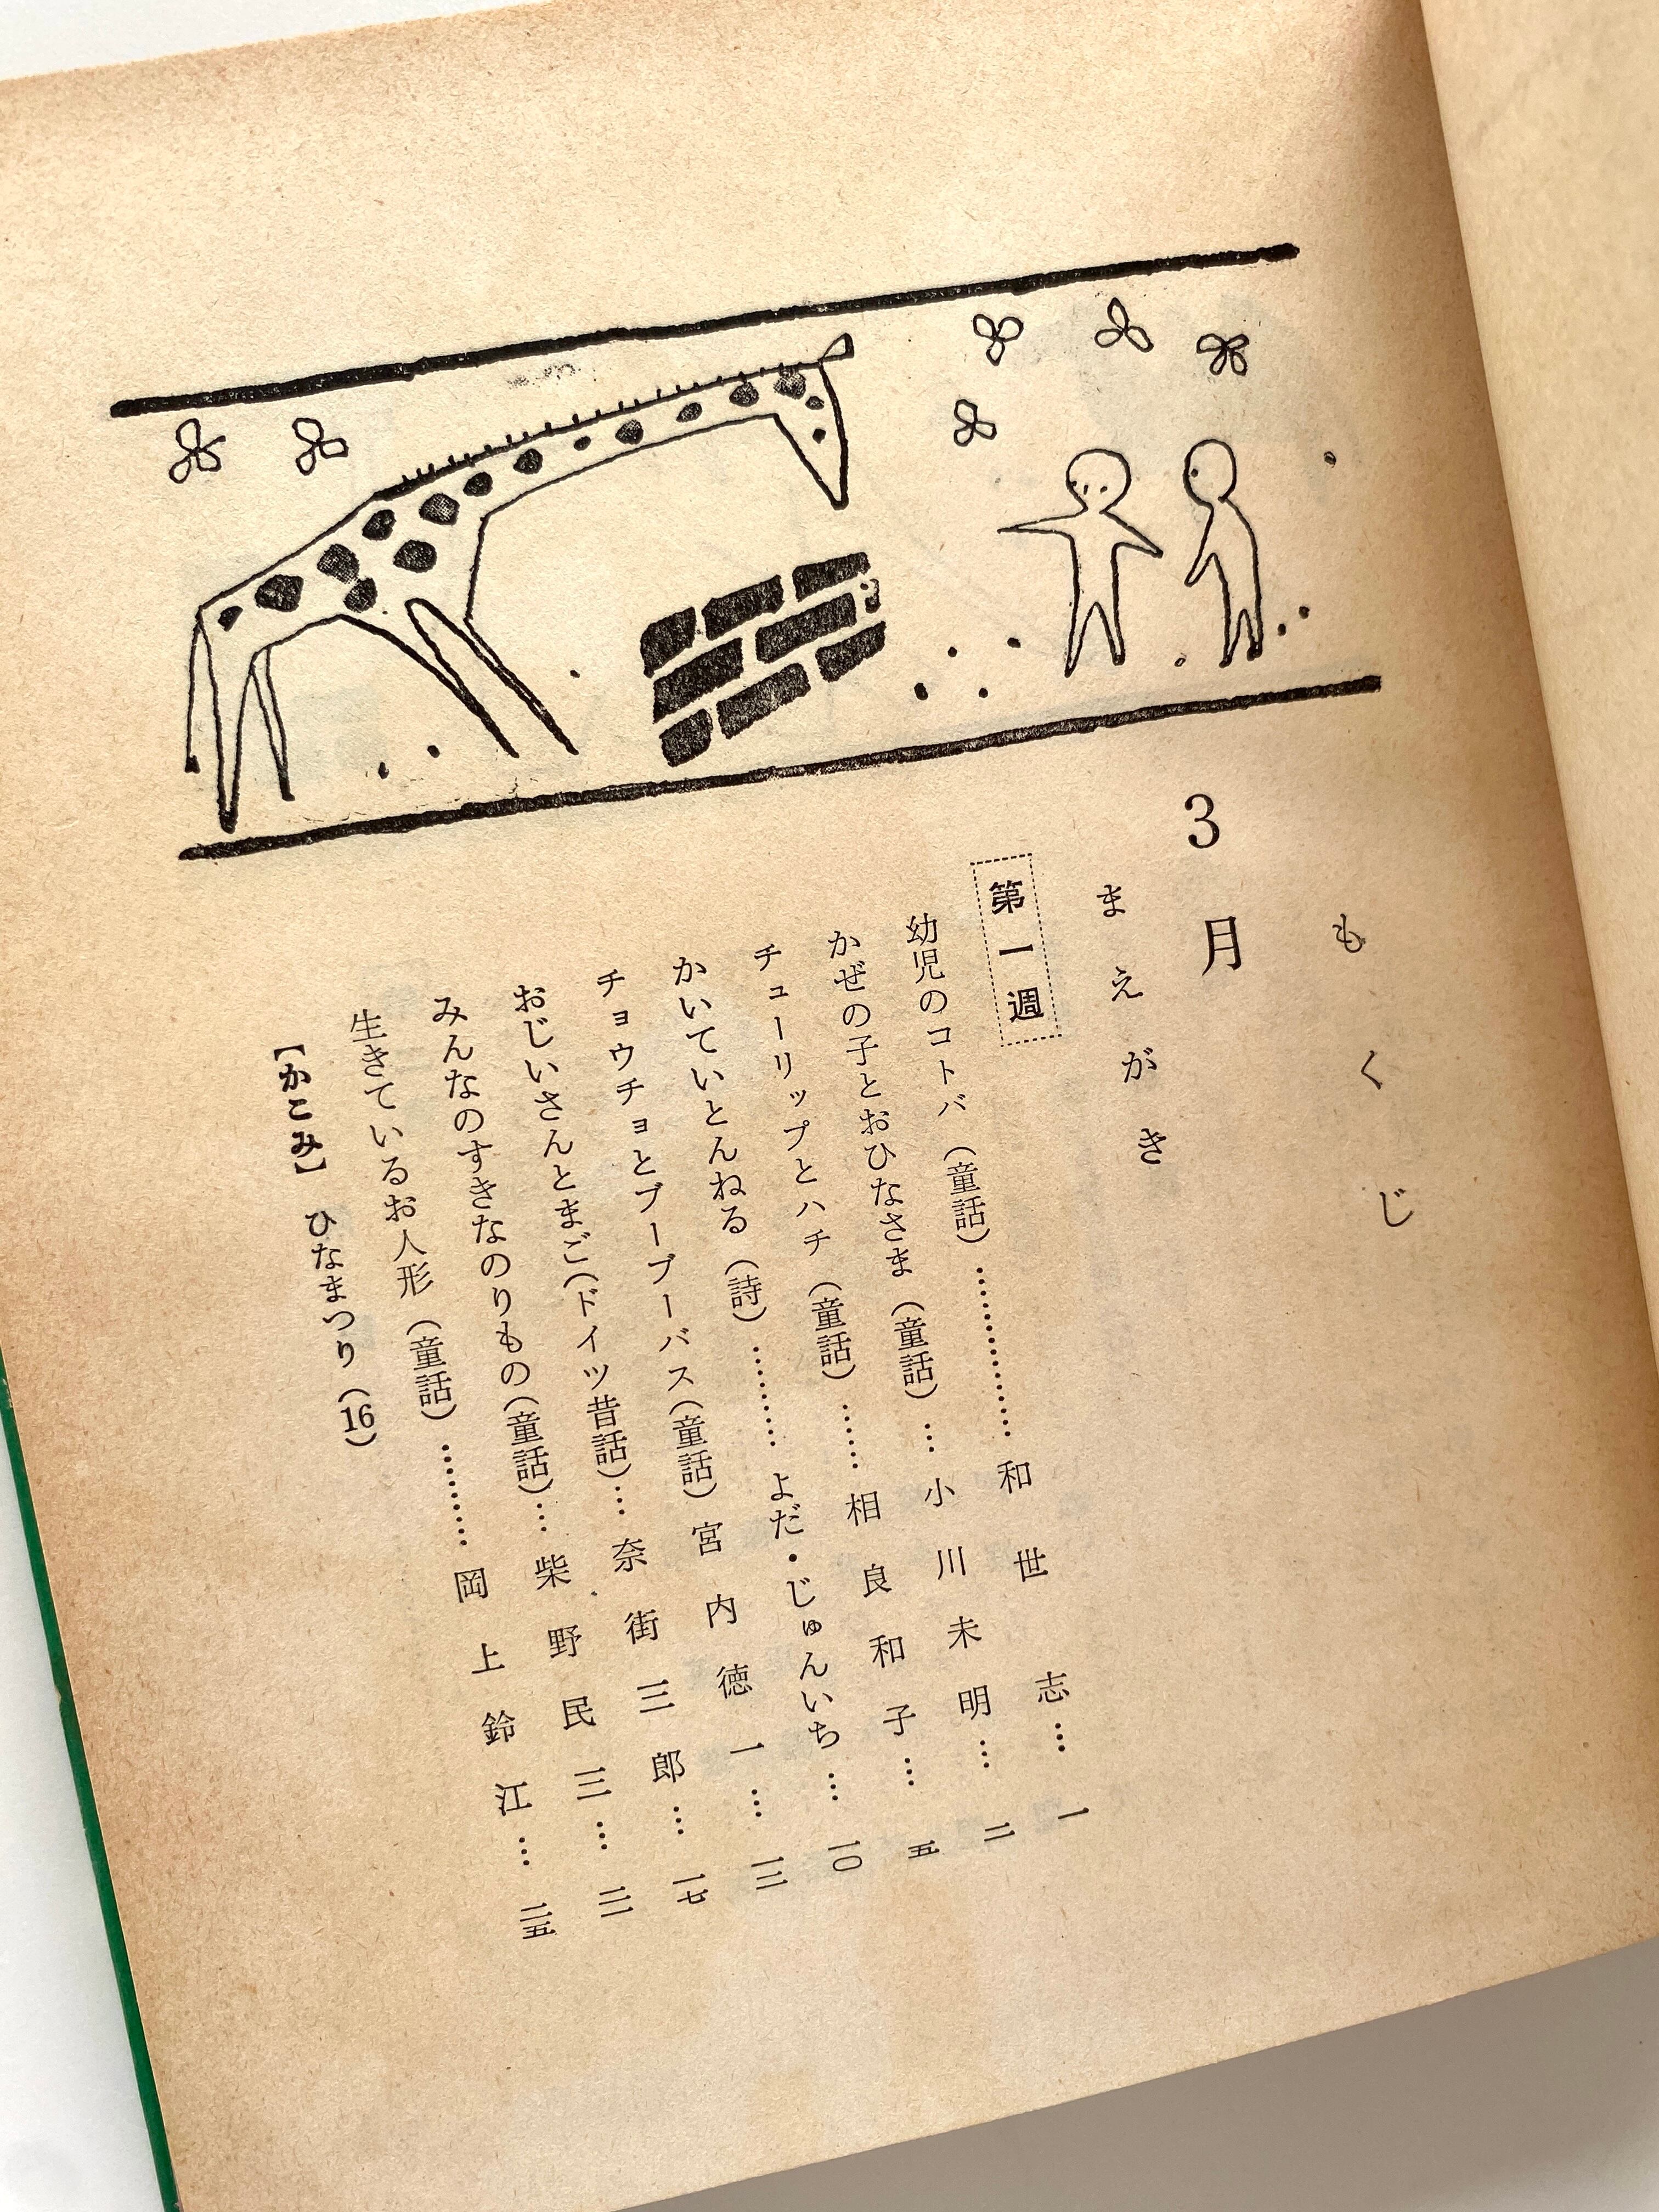 もくじ
3月
まえがき
第一週
幼児のコトバ（童話）………………和世志…一
かぜの子とおひなさま（童話）…小川未明…二
チューリップとハチ（童話）……相良和子…五
かいていとんねる（詩）………よだ・じゅんいち…一〇
チョウチョとブーブーバス（童話）宮内徳一…一三
おじいさんとまご（ドイツ昔話）…奈街三郎…一七
みんなのすきなのりもの（童話）…柴野民三…二二
生きているお人形（童話）………岡上鈴江…二五
【かこみ】ひなまつり（16）